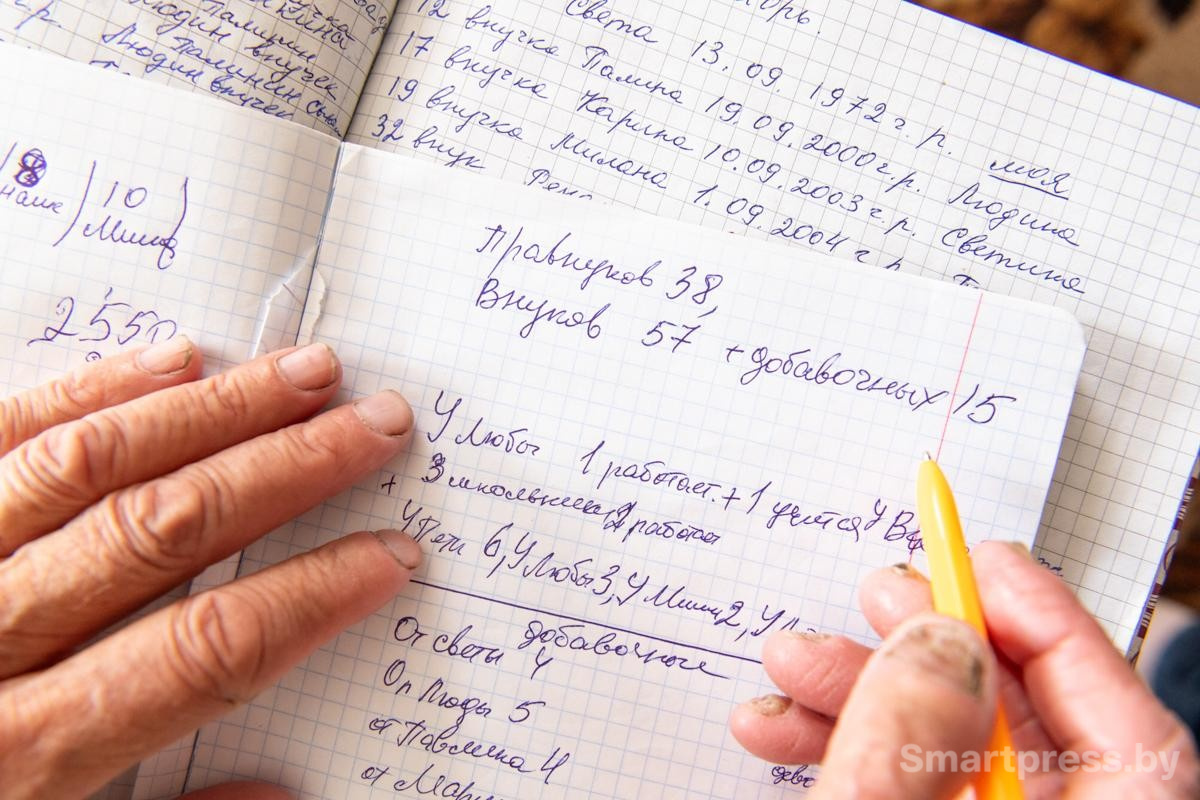 Палинин
Людин внучек
Палинин сын
Людин внучек
Света 13.09.1972 г.р. моя
12 внучка Палина 19.09.2000 г.р. Людина
17 внучка Карина 10.09.2003 г.р. Светина
19 внучка Милана 1.09.2004 г р.
32 внук
8 10
Миша
2550
Правнуков 38,
Внуков 57 + добавочных 15
У Любы 1 работает. + 1 учится У
+ 3 школьника, 2 работает
У Пети 6, У Любы 3, У Миши 2, У
добавочные
От светы 4
От Люды 5
от Павлика 4
от
Smartpress.by